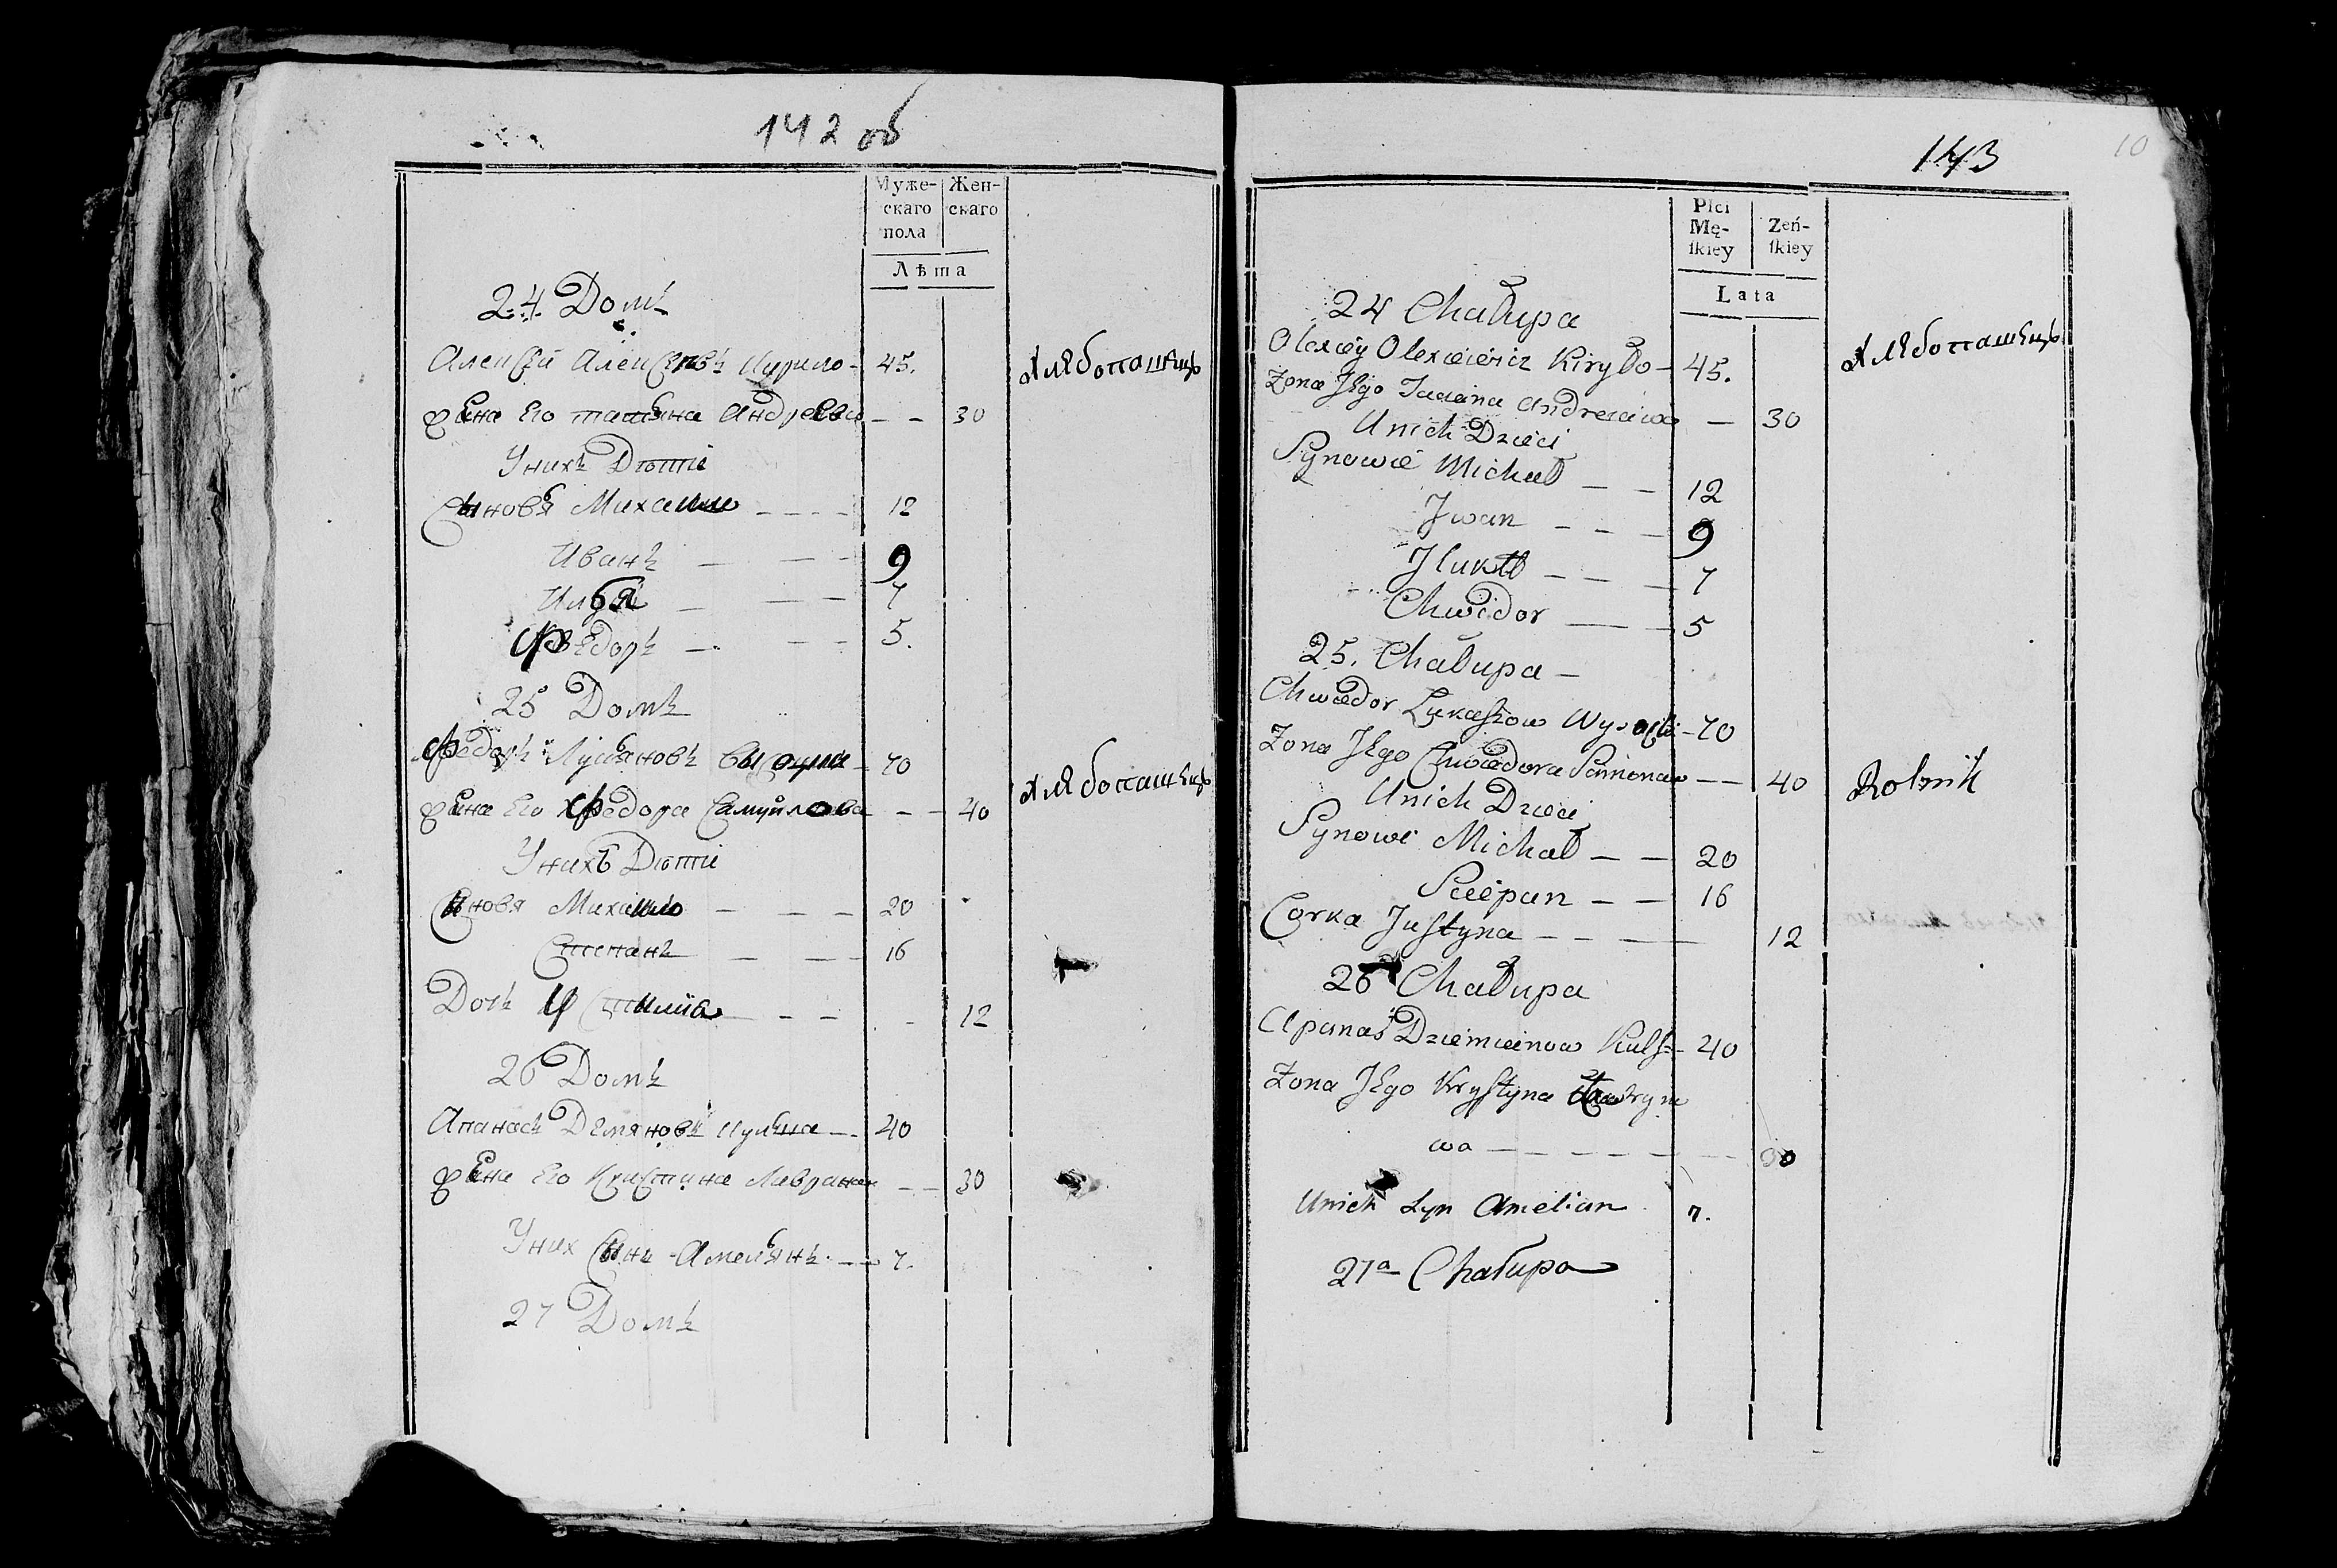 142 об
Муже-
скаго
пола
Жен-
скаго
Лѣта
24 Домъ
Алексѣй Алексѣевъ Курило - 45.
Хлебопашецъ
Жена Его татьяна Андреева - - 30
Унихъ Дѣтти
Сыновя Михаило - - - - 12
Иванъ - - - 9
Илья - - - 7
Федоръ - - - 5.
25 Домъ
Федоръ Лукъяновъ - 70
Хлебопашецъ
Жена Его Федора Самуилова - - 40
Унихъ Дѣтти
Сыновя Михаило - - - 20
Степанъ - - - 16
Дочь - - - - 12
26 Домъ
Апанасъ Демяновъ - 40
Жена Его Кристина - - 30
Уних Сынъ Амельянъ - - 7.
27 Домъ
143
10
Płci
Mę-
ſkiey
Zeń-
ſkiey
Lata
24 Chałupa
Olexiey Olexieiewicz Kiryło - 45.
Хлебопашецъ
Zona Jego Taciana Andreiewa - 30
Unich Dzieci
Synowie Michał - - 12
Jwan - - - 9
- - - 7
Chwiedor - - 5
25. Chałupa -
Chwiedor Łukaszow - 70
Zona Jego Chwiedora - - 40
Rolnik
Unich Dzieci
Synowi Michał - - 20
Sciepan - - 16
Corka Juſtyna - - - - 12
26 Chałupa
Apanas Dziemianow - 40
Zona Jego Kryſtyna
wa - - - - - - - 30
Unich Syn Amelian 7.
27a Chałupa